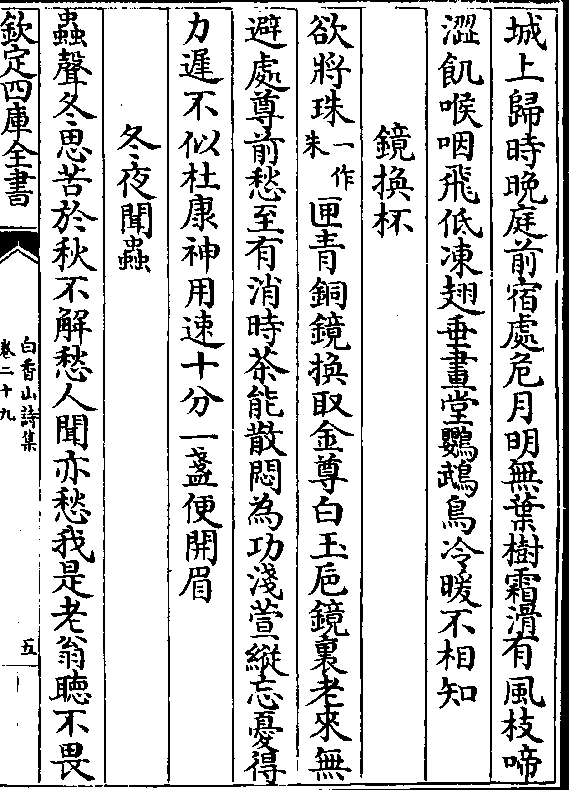 城上歸時晚庭前宿處危月明無葉樹霜滑有風枝啼
澀飢喉咽飛低凍翅垂畫堂鸚鵡鳥冷暖不相知
鏡換杯
欲將珠一作朱匣青銅鏡換取金尊白玉卮鏡裏老來無
避處尊前愁至有消時茶能散悶為功淺萱縱忘憂得
力遲不似杜康神用速十分一盞便開眉
冬夜聞蟲
蟲聲冬思苦於秋不解愁人聞亦愁我是老翁聽不畏
欽定四庫全書
白香山詩集
卷二十九
五